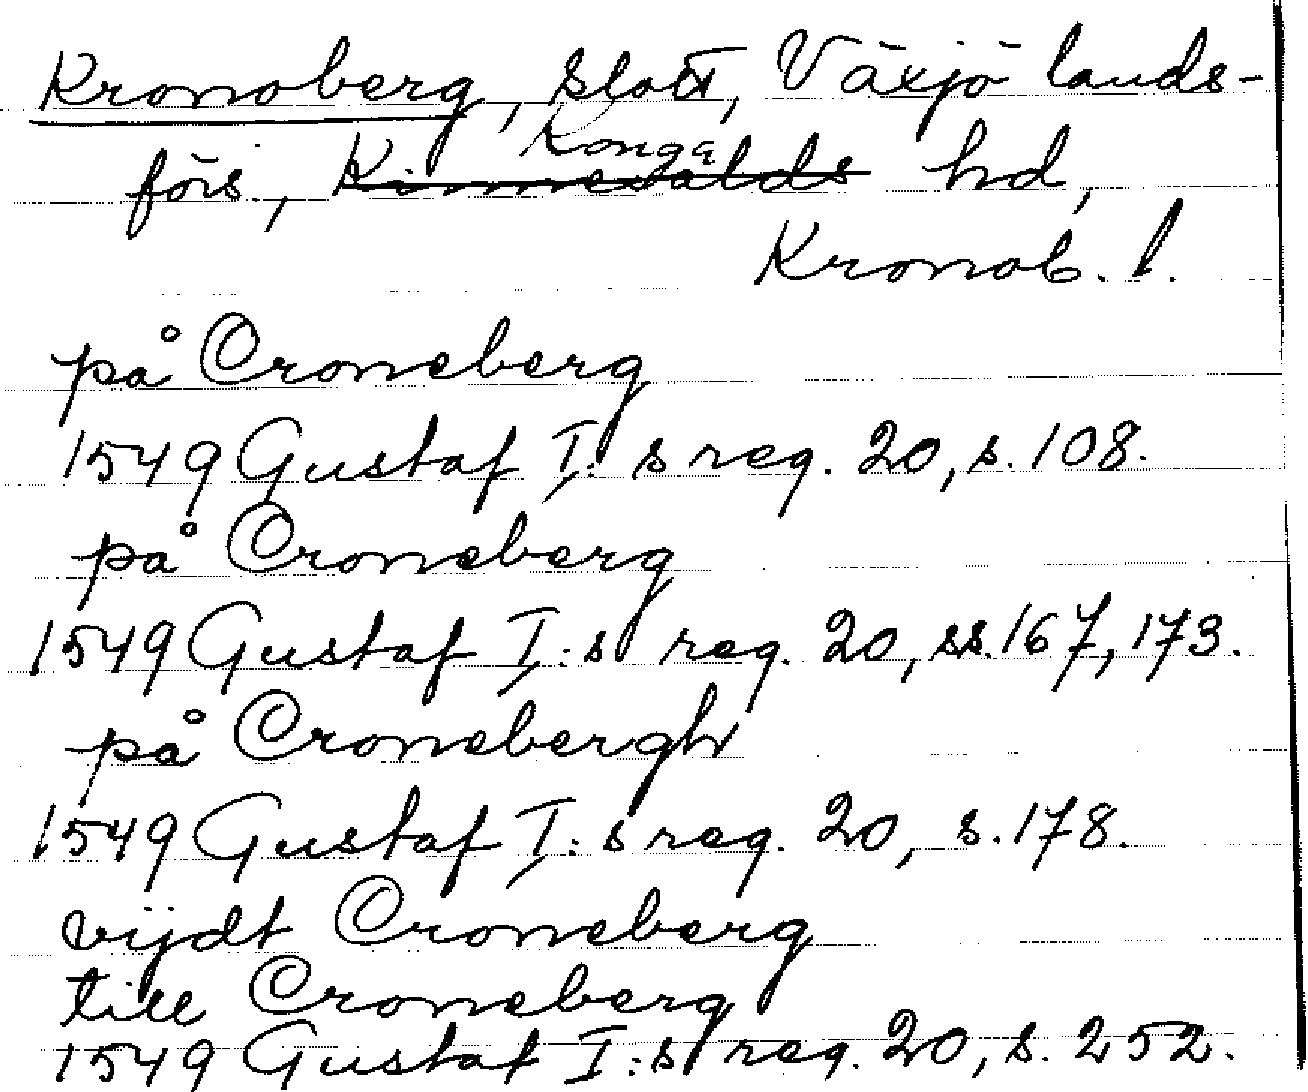 Kronoberg, slott, Växjö lands-
förs., Konga
Kinnevalds hd,
Kronob. l.
på Croneberg
1549 Gustaf I:s reg. 20, s. 108.
på Croneberg
1549 Gustaf I:s reg. 20, ss. 167, 173.
på Cronebergh
1549 Gustaf I:s reg. 20, s. 178.
vijdt Croneberg
till Croneberg
1549 Gustaf I:s reg. 20, s. 252.